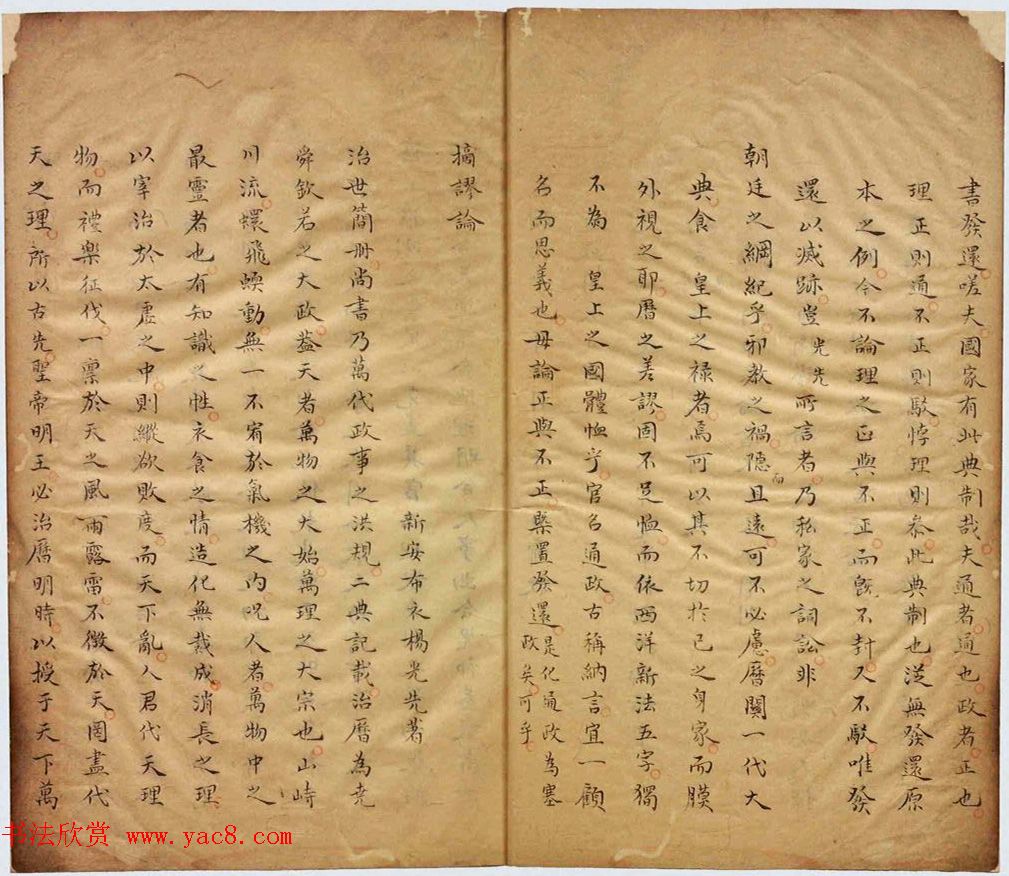 書發還嗟夫國家有此典制哉夫通者通也政者正也
理正則通不正則駁悖理則參此典制也從無發還原
本之例今不論理之正與不正而既不封又不駁唯發
還以滅跡豈光先所言者乃私家之詞訟非
朝廷之綱紀乎邪教之禍隱而且遠可不必慮曆關一代大
典食 皇上之祿者焉可以其不切於己之身家而膜
外視之耶曆之差謬固不足恤而依西洋新法五字獨
不為 皇上之國體恤乎官名通政古稱納言宜一顧
名而思義也毋論正與不正槩置發還是化通政為塞政矣可乎
摘謬論
新安布衣楊光先著
治世簡冊尚書乃萬代政事之洪規二典記載治曆為堯
舜欽若之大政葢天者萬物之大始萬理之大宗也山峙
川流蠉飛蝡動無一不宥於氣機之內況人者萬物中之
最靈者也有知識之性衣食之情造化無裁成消長之理
以宰治於太虛之中則縱欲敗度而天下亂人君代天理
物而禮樂征伐一稟於天之風雨露雷不徵於天罔盡代
天之理所以古先聖帝明王必治曆明時以授于天下萬
书法欣赏 www.yac8.com